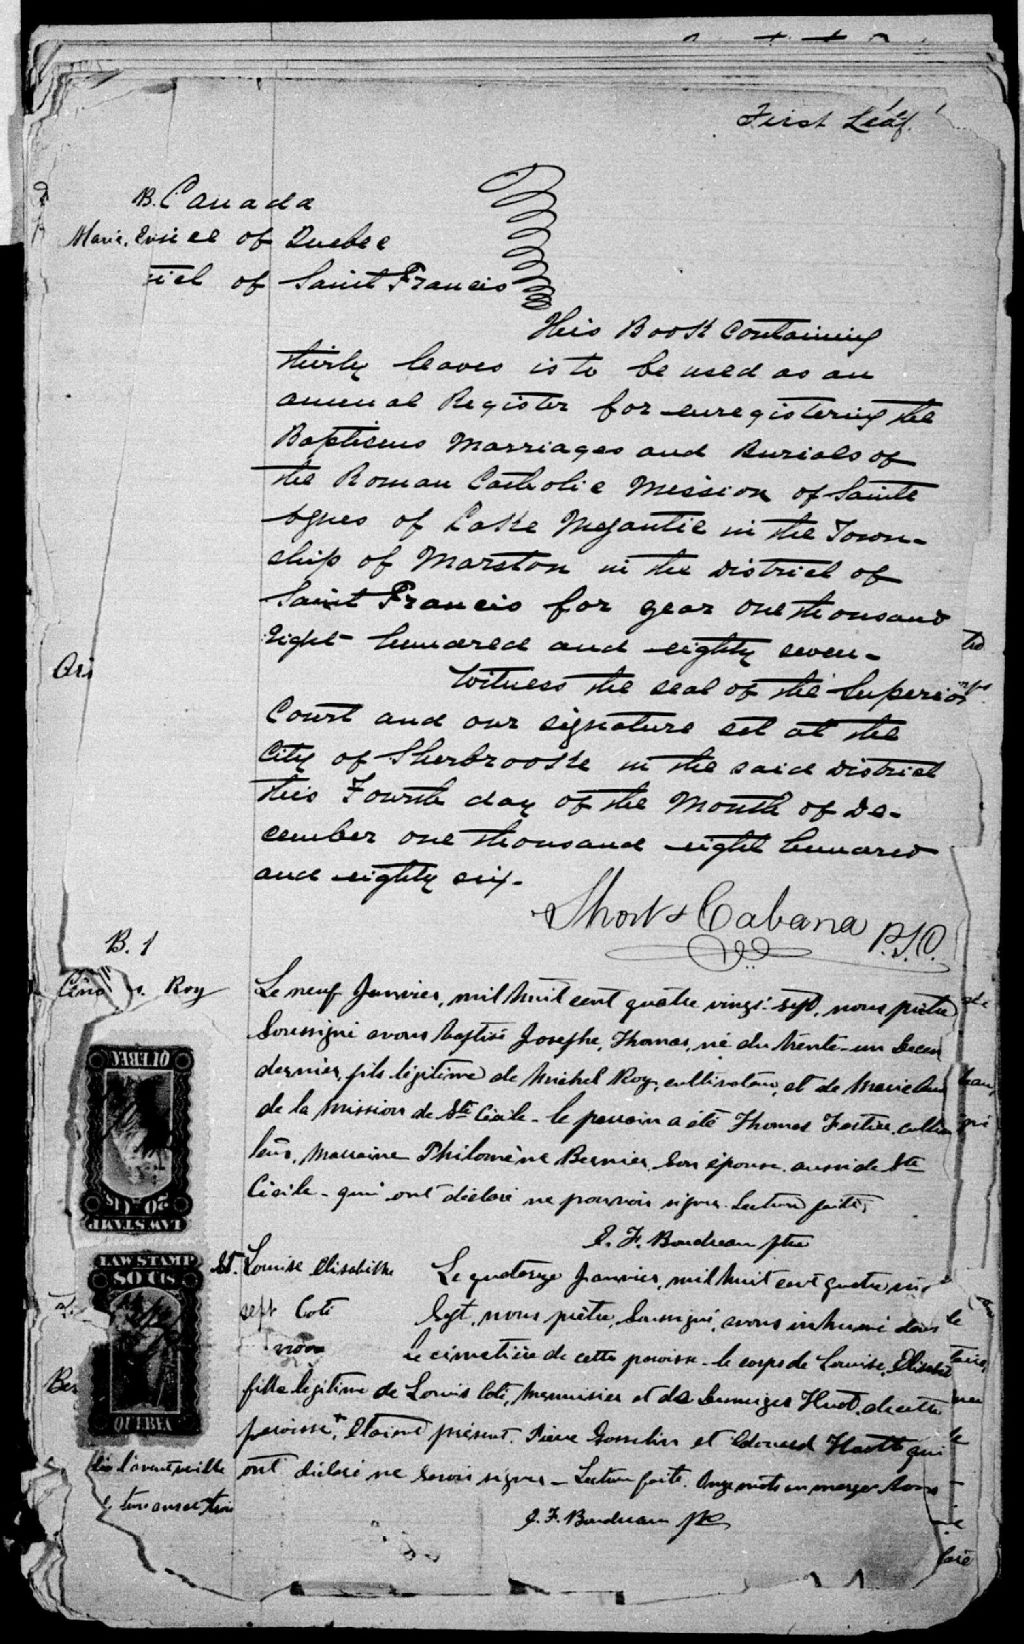 First Leaf.
B. Canada
Marie. Province of Quebec
of Saint Francis
This Book Containing
thirty leaves is to be used as an
annual Register for enregistering the
Baptisms Marriages and Burials of
the Roman Catholic Mission of Sainte
Agnes of Lake Megantic in the Town-
ship of Marston in the District of
Saint Francis for year one thousand
Eight hundred and eighty seven-
Witness the seal of the Superior
Court and our signature set at the
City of Sherbrooke in the said District
this Fourth day of the Month of De-
cember one thousand eight hundred
and eighty six.
Short & Cabana P.S.C.
B. 1
Roy
Le neuf Janvier, mil huit cent quatre vingt-sept, nous prêtre
Soussigné avons baptisé Josephe, Thomas, né du trente-un Decem
dernier, fils légitime de Michel Roy, cultivateur, et de Marie
de la mission de Ste Cécile - le parrain a été Thomas Fortier, culti
teur, Marraine Philomène Bernier, son épouse, aussi de Ste
Cécile - qui ont déclaré ne pouvoir signer. Lecture faite,
J. F. Boudreau ptre
QUEBEC
20 CTS
LAW STAMP
LAW STAMP
50 CTS
QUEBEC
S1. Louise Elisabeth
Coté
Le quatorze Janvier, mil huit cent quatre vingt
Sept, nous prêtre, Soussigné, avons inhumé dans
le cimetière de cette paroisse - le corps de Louise, Elisabeth
fille légitime de Louis Coté, Menuisier et de Huot, de cette
paroisse + Etaient présent. Pierre Gosselin et Edouard qui
ont déclaré ne savoir signer - Lecture faite. Onze mots en marge bons
J. F. Boudreau ptre